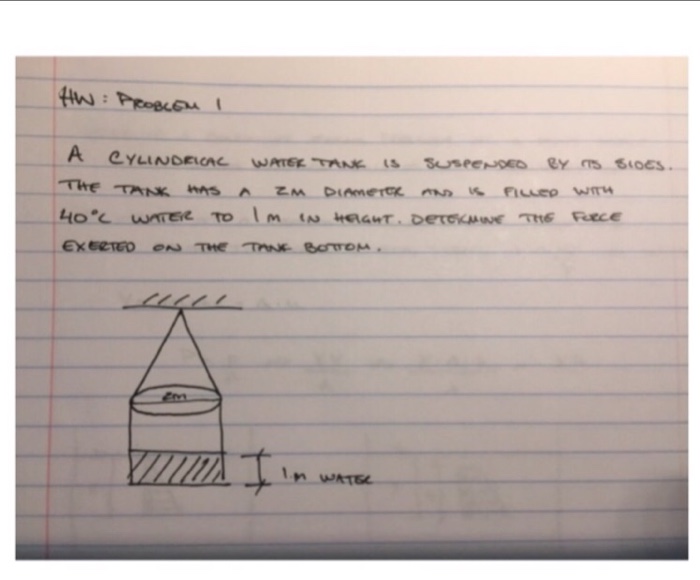 HW: PROBLEM 1
A CYLINDRICAL WATER TANK IS SUSPENDED BY ITS SIDES.
THE TANK HAS A 2M DIAMETER AND IS FILLED WITH
40°C WATER TO 1M IN HEIGHT. DETERMINE THE FORCE
EXERTED ON THE TANK BOTTOM.
2m
1M WATER